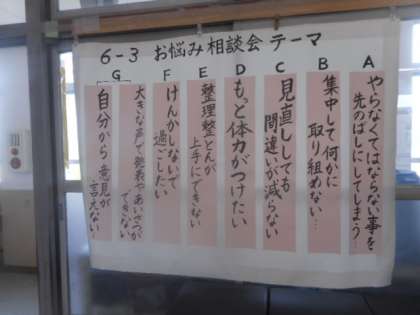 6-3 お悩み相談会テーマ
A
やらなくてはならない事を
先のばしにしてしまう
B
集中して何かに
取り組めない…
C
見直ししても
間違いが減らない
D
もっと体力がつけたい
E
整理整とんが
上手にできない
F
けんかしないで
過ごしたい
G
大きな声で発表やあいさつが
できない
自分から意見が
言えない